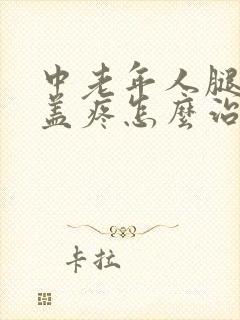 中老年人腿
盖疼怎麼治
卡拉